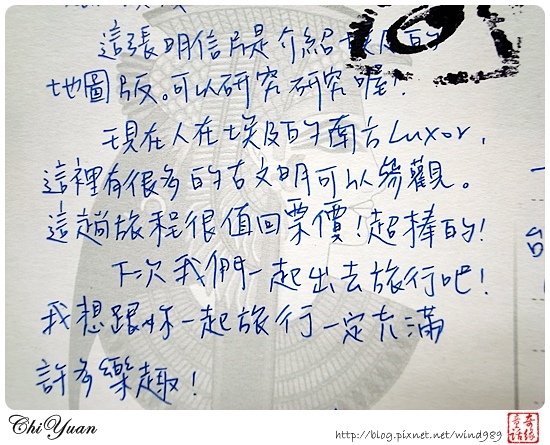 這張明信片是介紹埃及的
地圖版。可以研究研究喔!
現在人在埃及的南方Luxor,
這裡有很多的古文明可以參觀。
這趟旅程很值回票價!超棒的!
下次我們一起出去旅行吧!
我想跟妳一起旅行一定充滿
許多樂趣!
ChiYuan
http://blog.pixnet.net/wind989